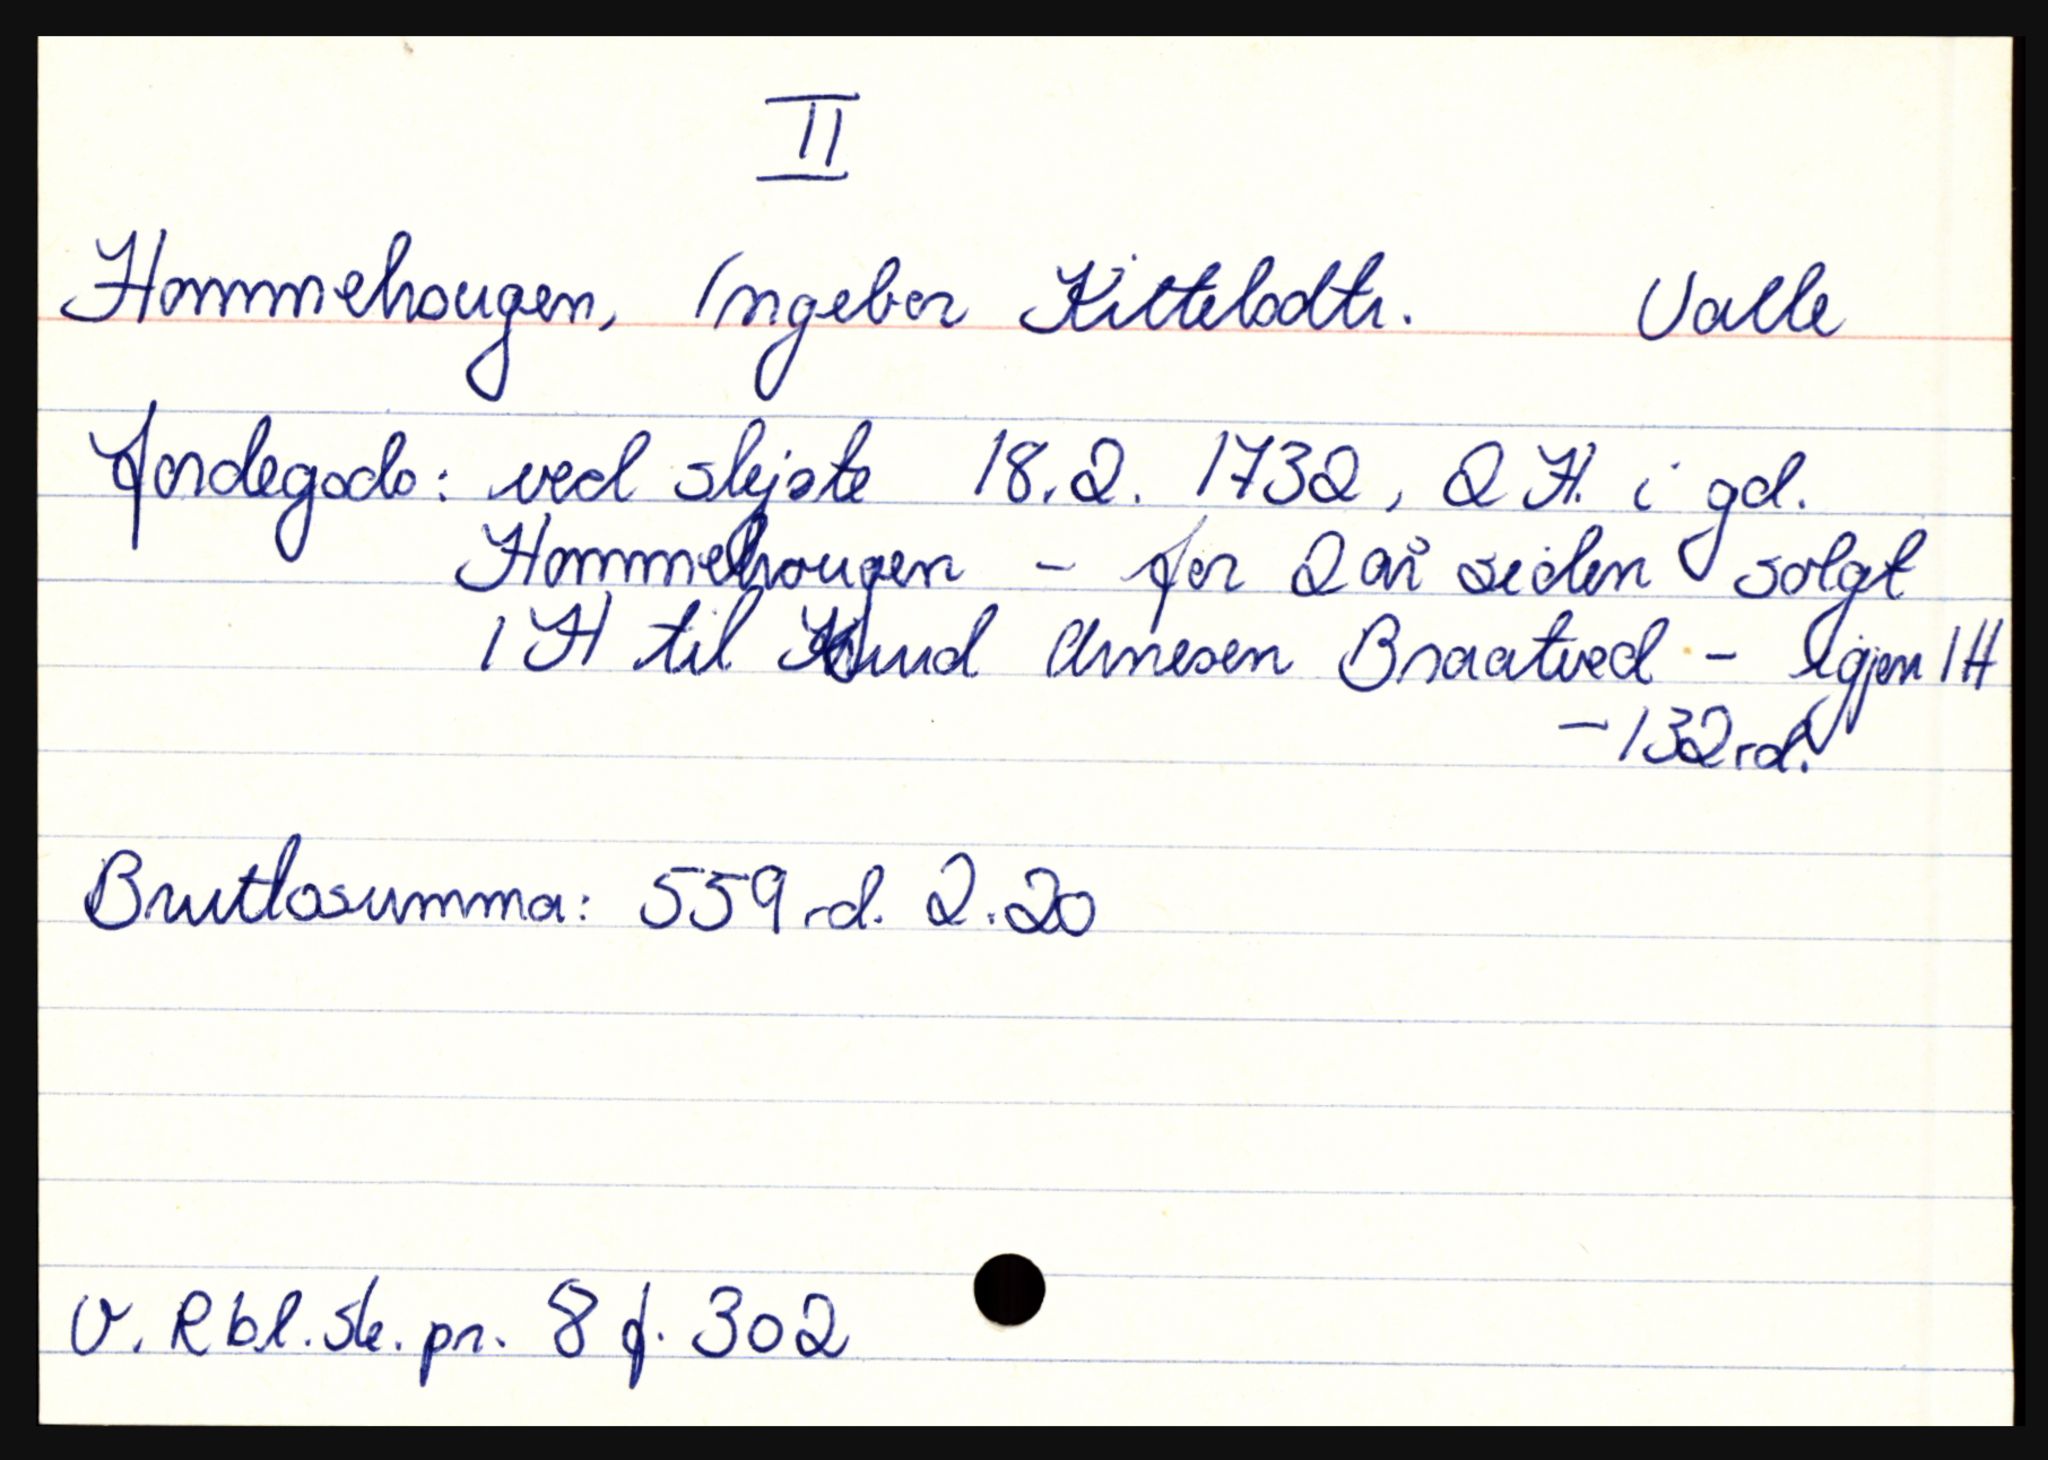 II
Hommehougen, Ingebor Kittelsdtr. Valle
Jordegods: ved skjøte 18.2. 1732, 2 H. i gd.
Hommehougen - for 2 år siden solgt
1 H til Knud Arnesen Braatved - Igjen 1 H
- 132 rd.
Bruttosumma: 559 rd. 2.20
V. Rbl. sk. pr. 8 f. 302